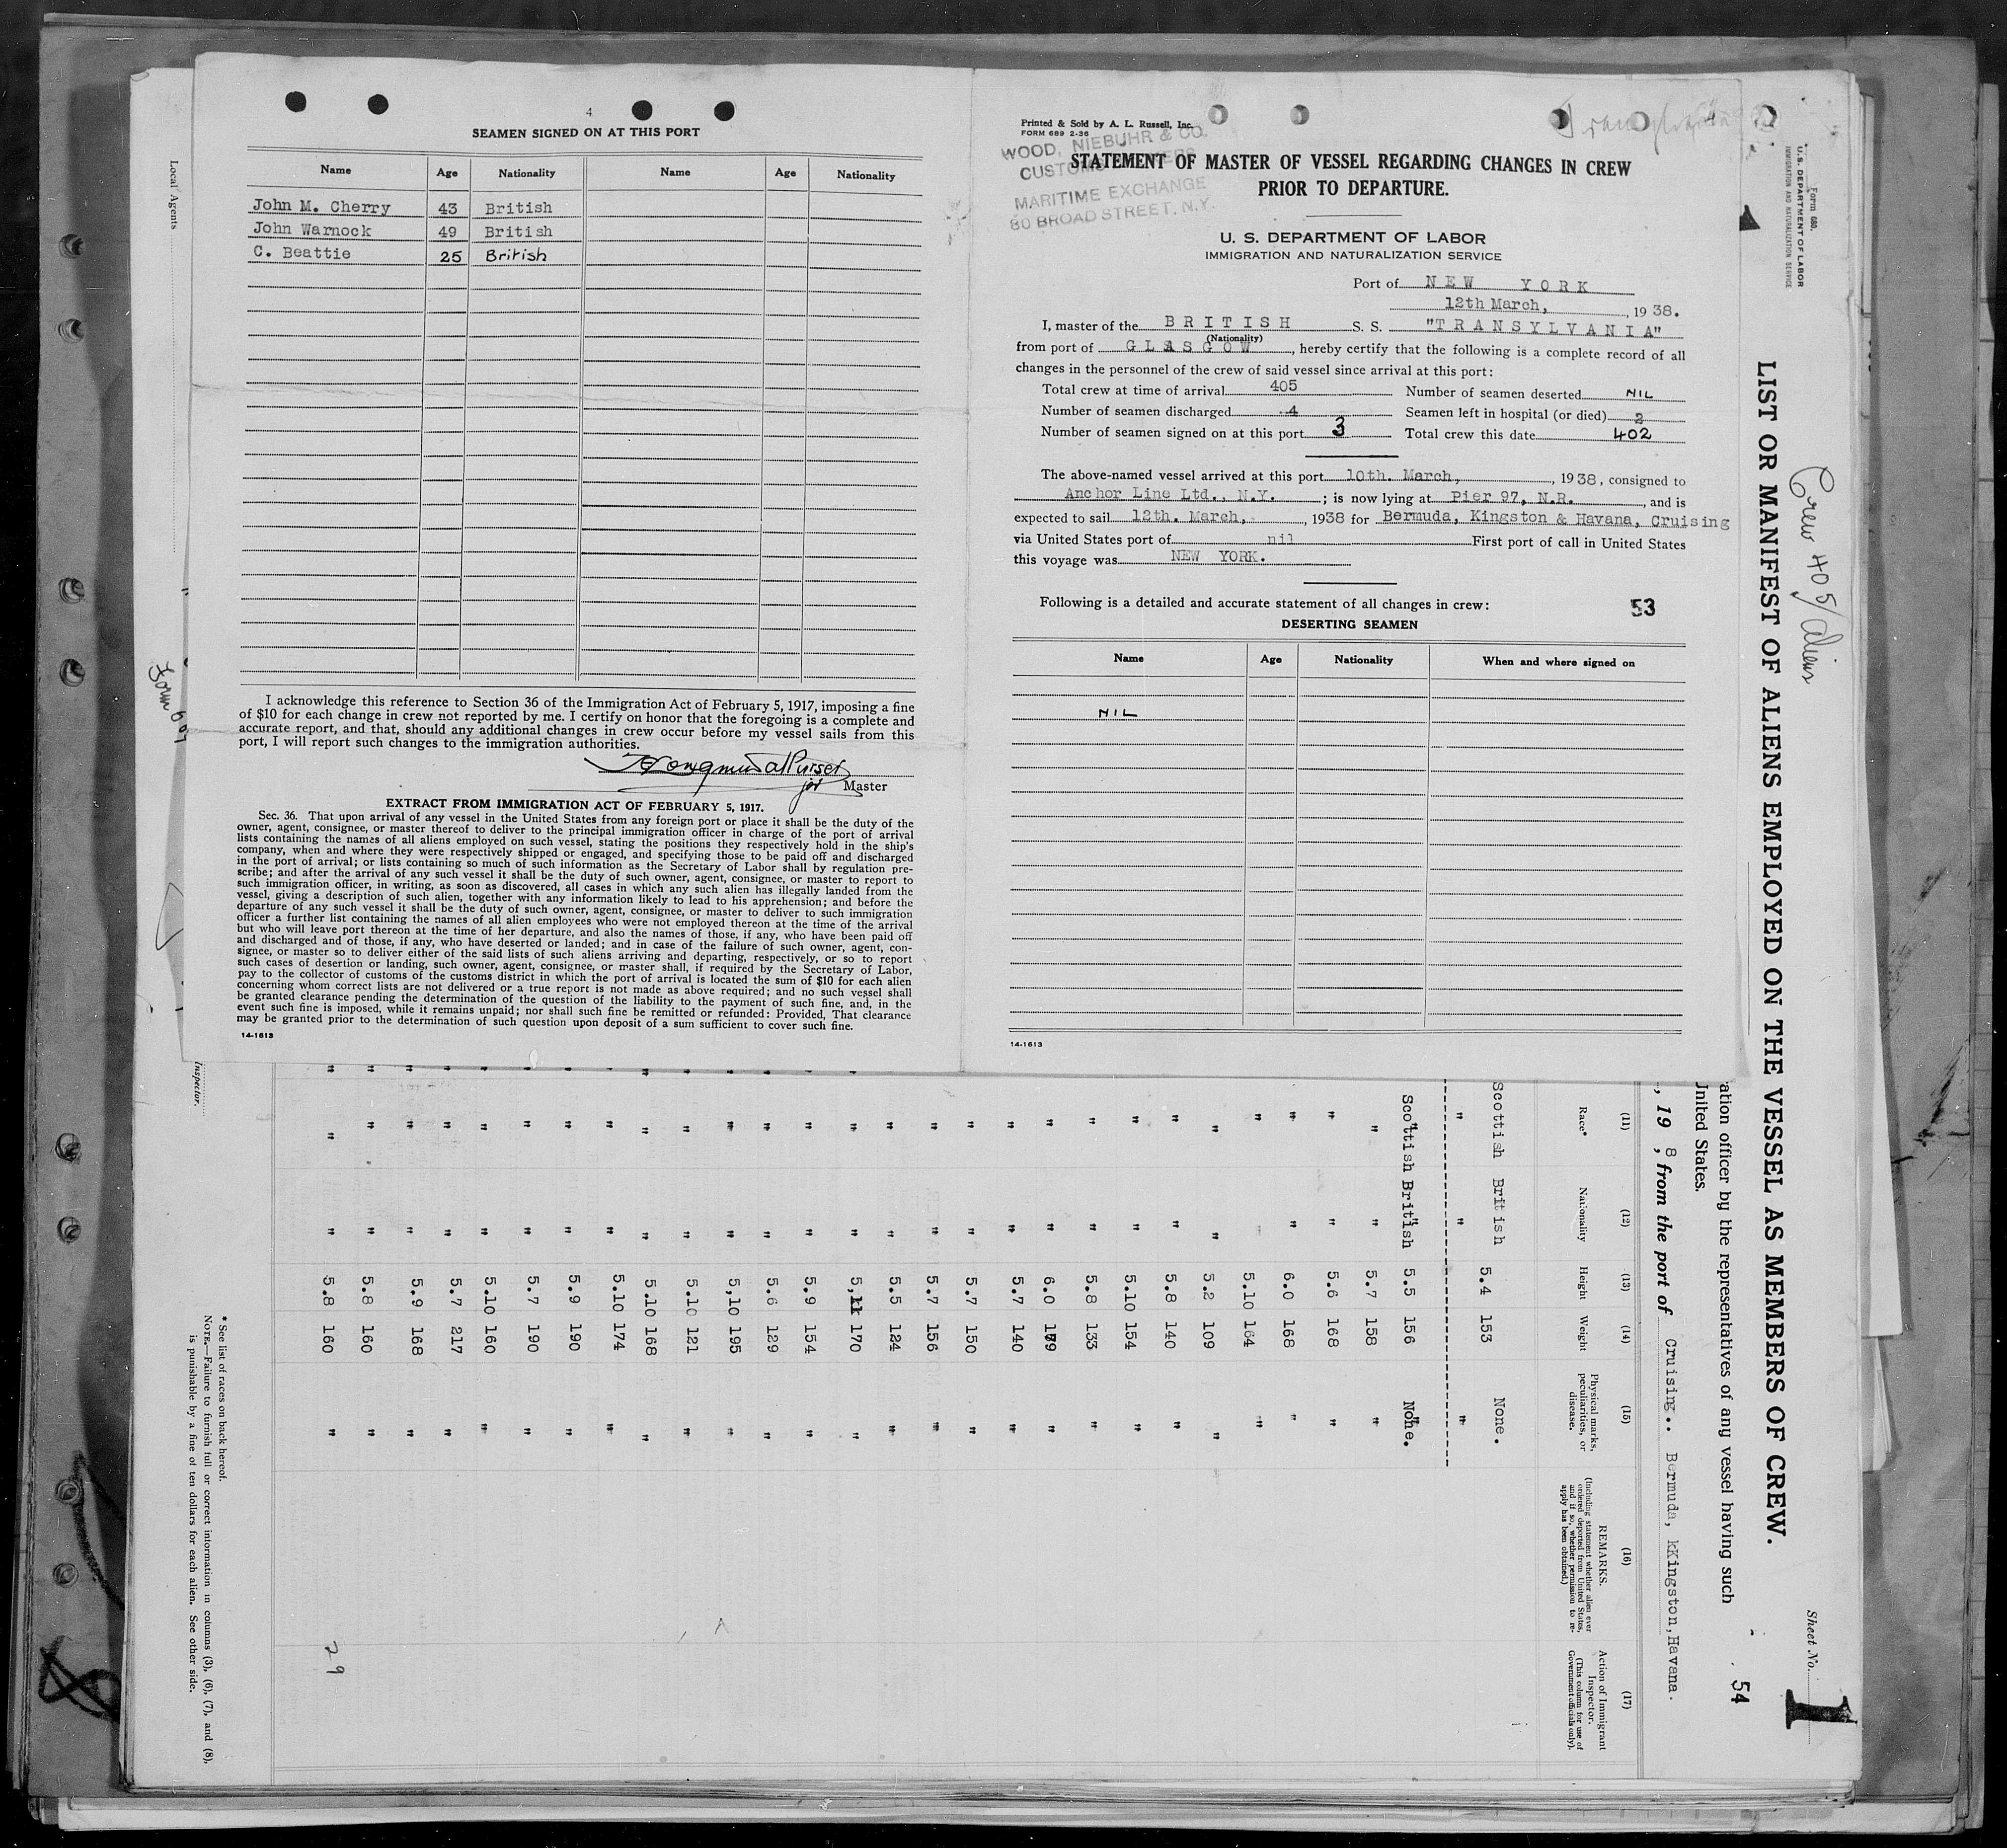 4
SEAMEN SIGNED ON AT THIS PORT
Name Age Nationality Name Age Nationality
John M. Cherry 43 British
John Warnock 49 British
C. Beattie 25 British
I acknowledge this reference to Section 36 of the Immigration Act of February 5, 1917, imposing a fine
of $10 for each change in crew not reported by me. I certify on honor that the foregoing is a complete and
accurate report, and that, should any additional changes in crew occur before my vessel sails from this
port, I will report such changes to the immigration authorities.
for Master
EXTRACT FROM IMMIGRATION ACT OF FEBRUARY 5, 1917.
Sec. 36. That upon arrival of any vessel in the United States from any foreign port or place it shall be the duty of the
owner, agent, consignee, or master thereof to deliver to the principal immigration officer in charge of the port of arrival
lists containing the names of all aliens employed on such vessel, stating the positions they respectively hold in the ship's
company, when and where they were respectively shipped or engaged, and specifying those to be paid off and discharged
in the port of arrival; or lists containing so much of such information as the Secretary of Labor shall by regulation pre-
scribe; and after the arrival of any such vessel it shall be the duty of such owner, agent, consignee, or master to report to
such immigration officer, in writing, as soon as discovered, all cases in which any such alien has illegally landed from the
vessel, giving a description of such alien, together with any information likely to lead to his apprehension; and before the
departure of any such vessel it shall be the duty of such owner, agent, consignee, or master to deliver to such immigration
officer a further list containing the names of all alien employees who were not employed thereon at the time of the arrival
but who will leave port thereon at the time of her departure, and also the names of those, if any, who have been paid off
and discharged and of those, if any, who have deserted or landed; and in case of the failure of such owner, agent, con-
signee, or master so to deliver either of the said lists of such aliens arriving and departing, respectively, or so to report
such cases of desertion or landing, such owner, agent, consignee, or master shall, if required by the Secretary of Labor,
pay to the collector of customs of the customs district in which the port of arrival is located the sum of $10 for each alien
concerning whom correct lists are not delivered or a true report is not made as above required; and no such vessel shall
be granted clearance pending the determination of the question of the liability to the payment of such fine, and, in the
event such fine is imposed, while it remains unpaid; nor shall such fine be remitted or refunded: Provided, That clearance
may be granted prior to the determination of such question upon deposit of a sum sufficient to cover such fine.
14-1613
Printed & Sold by A. L. Russell, Inc.
FORM 689 2-36
WOOD, NIEBUHR & CO.
CUSTOMS
MARITIME EXCHANGE
80 BROAD STREET, N.Y.
STATEMENT OF MASTER OF VESSEL REGARDING CHANGES IN CREW
PRIOR TO DEPARTURE.
U. S. DEPARTMENT OF LABOR
IMMIGRATION AND NATURALIZATION SERVICE
Port of NEW YORK
12th March, , 1938.
I, master of the BRITISH S. S. "TRANSYLVANIA"
(Nationality)
from port of GLASGOW , hereby certify that the following is a complete record of all
changes in the personnel of the crew of said vessel since arrival at this port:
Total crew at time of arrival 405 Number of seamen deserted NIL
Number of seamen discharged 4 Seamen left in hospital (or died) 2
Number of seamen signed on at this port 3 Total crew this date 402
The above-named vessel arrived at this port 10th. March, , 1938, consigned to
Anchor Line Ltd., N.Y. ; is now lying at Pier 97, N.R. , and is
expected to sail 12th. March, , 1938 for Bermuda, Kingston & Havana, Cruising
via United States port of nil First port of call in United States
this voyage was NEW YORK.
Following is a detailed and accurate statement of all changes in crew:
53
DESERTING SEAMEN
Name Age Nationality When and where signed on
NIL
14-1613
Form 680.
U. S. DEPARTMENT OF LABOR
IMMIGRATION AND NATURALIZATION SERVICE
Crew 405/aliens
Sheet No. 1
LIST OR MANIFEST OF ALIENS EMPLOYED ON THE VESSEL AS MEMBERS OF CREW.
54
ation officer by the representatives of any vessel having such
United States.
, 19 8, from the port of Cruising.. Bermuda, kKingston,Havana.
(11) (12) (13) (14) (15) (16) (17)
Race* Nationality Height Weight Physical marks, peculiarities, or disease. REMARKS. (Including statement whether alien ever ordered deported from United States, and if so, whether permission to re-apply has been obtained.) Action of Immigrant Inspector. (This column for use of Government officials only).
Scottish British 5.4 153 None.
" " "
Scottish British 5.5 156 None.
" " 5.7 158 "
" " 5.6 168 "
" " 6.0 168 "
" " 5.10 164 "
" " 5.2 109 "
" " 5.8 140 "
" " 5.10 154 "
" " 5.8 133 "
" " 6.0 179 "
" " 5.7 140 "
" " 5.7 150 "
" " 5.7 156 "
" " 5.5 124 "
" " 5,kk 170 "
" " 5.9 154 "
" " 5.6 129 "
" " 5,10 195 "
" " 5.10 121 "
" " 5.10 168 "
" " 5.10 174 "
" " 5.9 190 "
" " 5.7 190 "
" " 5.10 160 "
" " 5.7 217 "
" " 5.9 168 "
" " 5.8 160 "
" " 5.8 160 "
29
* See list of races on back hereof.
NOTE—Failure to furnish full or correct information in columns (3), (6), (7), and (8),
is punishable by a fine of ten dollars for each alien. See other side.
Local Agents
Form 689
Inspector.